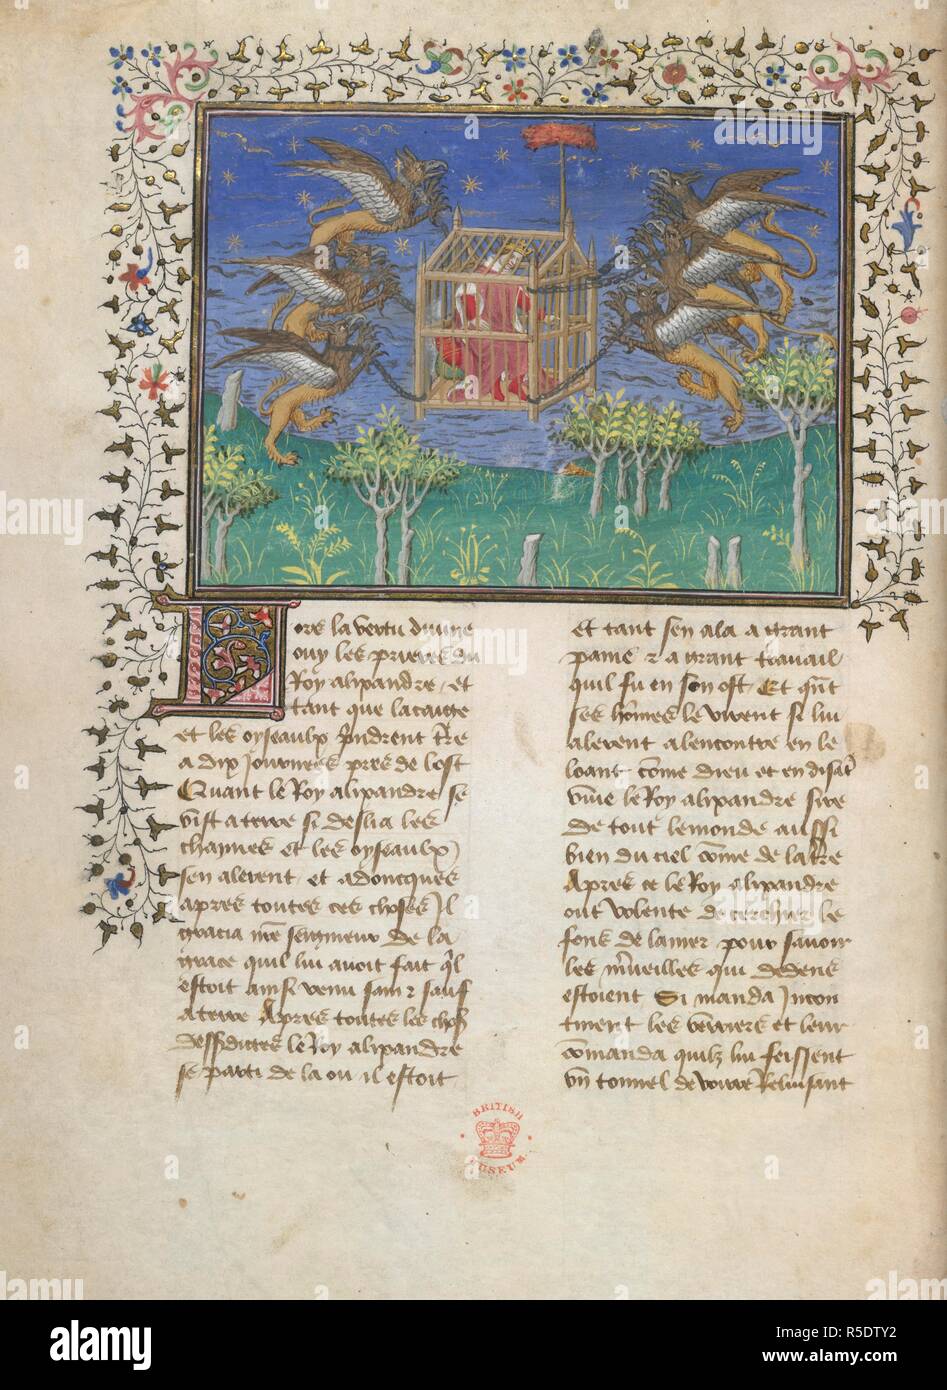 Lors la vertu diuine
ouy les prieres du
Roy alixandre et
tant que la caige
et les oyseaulx prindrent tre
a dix Journees pres de lost
Quant le Roy alixandre se
vist a terre si deslia les
chaynnes et les oyseaulx
sen alerent et adoncques
apres toutes ces choses Il
gracia nre seigneur de la
grace quil lui auoit fait ql
estoit ainsi venu sain z sauf
a terre Apres toutes les choss
dessusdictes le Roy alixandre
se parti de la ou il estoit
et tant sen ala a grant
paine z a grant trauail
quil fu en son ost Et qnt
ses homes le virent si lui
alerent alencontre en le
loant come dieu et en disat
viue le Roy alixandre sire
de tout le monde aussi
bien du ciel come de la tre
Apres ce le Roy alixandre
out volente de cerchier le
fons de la mer pour sauoir
les merueilles qui dedens
estoient Si manda Incon
tinent les verriers et leur
comanda quilz lui feissent
vn tonnel de voirre Reluisant
BRITISH
MUSEUM
alamy
Image ID: R5DTY2
www.alamy.com